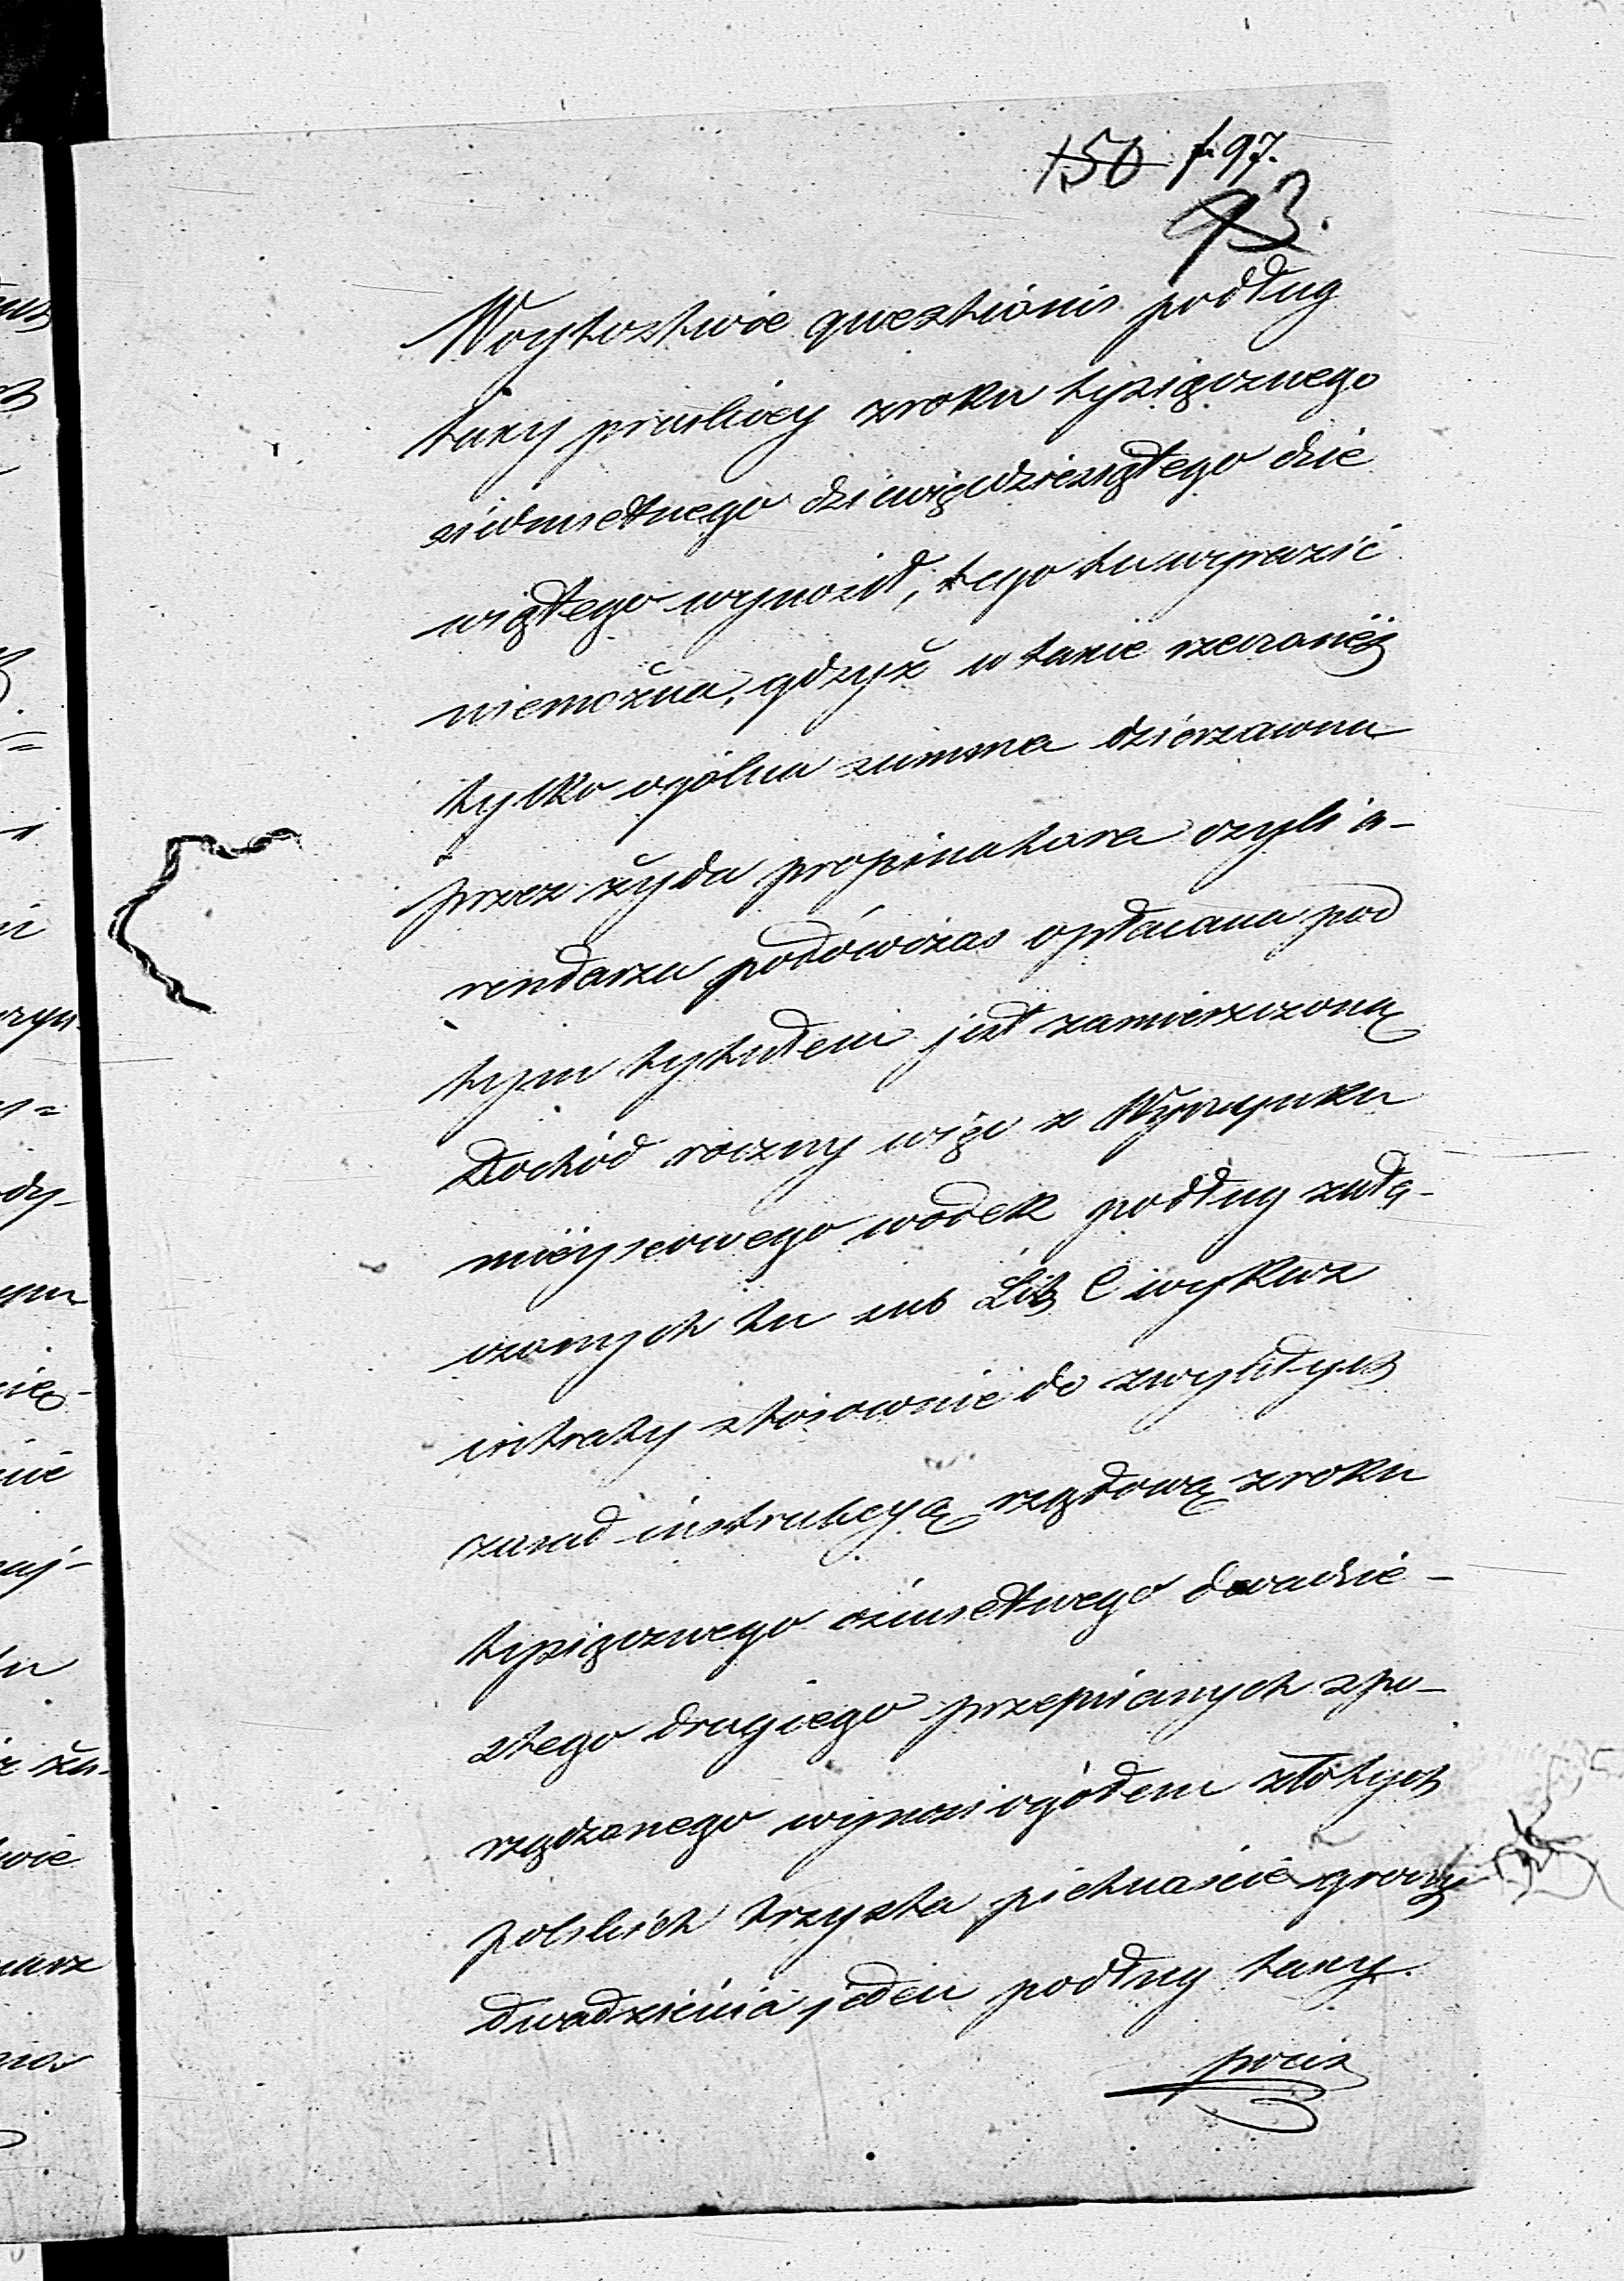 150 f. 97.
93.
Woytostwie questionis podług
taxy pruskiey z roku tysiącznego
siedmsetnego dziewięćdziesiątego dzie
wiątego wynosił, tego tu wyrazić
niemożna, gdyż w taxie rzeczonéj
tylko ogólna summa dzierzawna
przez żyda propinatora czyli a-
rendarza podówczas opłacana pod
tym tytułem jest zamieszczoną
Dochód roczny więc z Wyszynku
miéyscowego wódek podług załą-
czonych tu sub Lit. C wykaz
intraty stosownie do zwykłych
zasad instrukcyą rządową z roku
tysiącznego ośmsetnego dwadzie-
stego drugiego przepisanych spo-
rządzonego wynosi ogółem złotych
polskich trzysta pietnaście groszy
dwadzieścia jeden podług taxy
prus